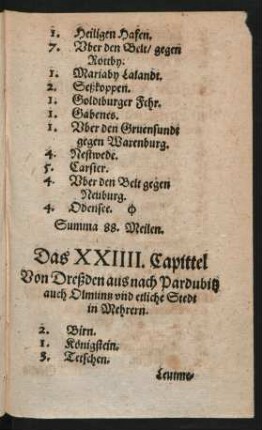 1. Heiligen Hafen.
7. Vber den Belt/ gegen
Rottby.
1. Mariaby Lalandt.
2. Seßkoppen.
1. Goldtburger Fehr.
1. Gabenes.
1. Vber den Gruensundt
gegen Warenburg.
4. Nestwede.
5. Carster.
4. Vber den Belt gegen
Neuburg.
4. Odensee.
Summa 88. Meilen.
Das XXIIII. Capittel
Von Dreßden aus nach Pardubitz
auch Olmünz vnd etliche Stedt
in Mehrern.
2. Birn.
1. Königstein.
3. Tetschen.
Leutme-